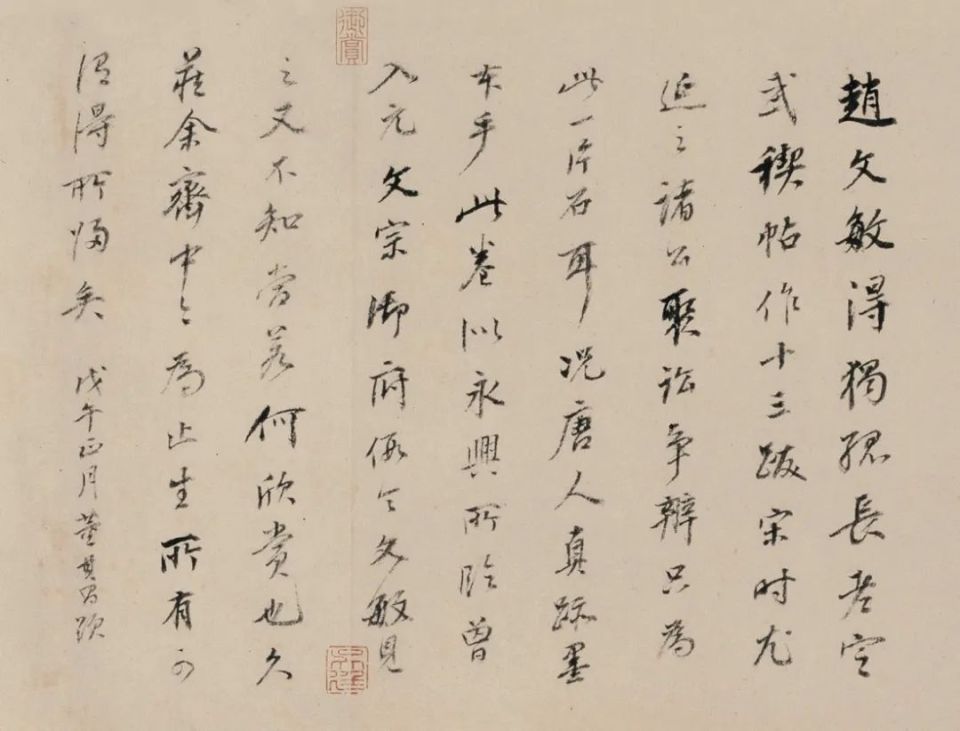 趙文敏得獨孤長老定
武稧帖作十三跋宋时尤
延之諸公聚訟爭辯只為
此一片石耳况唐人真跡墨
本乎此卷似永興所臨曾
入元文宗御府假令文敏見
之又不知當若何欣賞也久
藏余齋中今為止生所有可
謂得所歸矣 戊午正月董其昌跋
御賞